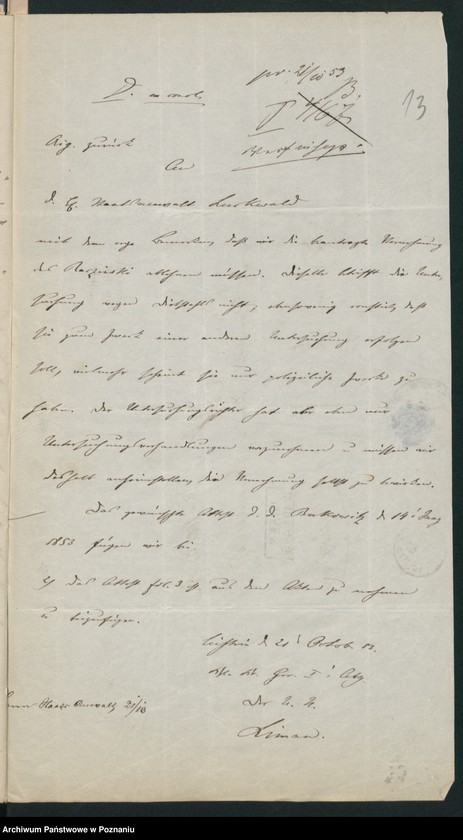 pr. 21/10 53
13
orig. zurück
An
d. H. Staatsanwalt
mit dem erg. Bemerken, daß wir die beantragte Vernehmung
des Raczinski ablehnen müssen. Dieselbe betrifft die Unter-
suchung wegen Diebstahls nicht, ebensowenig erhellt, daß
sie zum Zweck einer anderen Untersuchung erfolgen
soll, vielmehr scheint sie nur polizeiliche Zwecke zu
haben. Der Untersuchungsrichter hat aber eben nur
Untersuchungsverhandlungen vorzunehmen u müssen wir
deshalb anheimstellen, die Vernehmung selbst zu bewirken.
Das gewünschte Attest d. d. d. 14t
1853 fügen wir bei
2) das Attest fol. 3 ist aus den Akten zu nehmen
u beizufügen.
d. 21t Octob 53.
Kr. Ger. I t Abth
Der U. R.
Liman.
Herrn Staats Anwalt 21/10
Archiwum Państwowe w Poznaniu